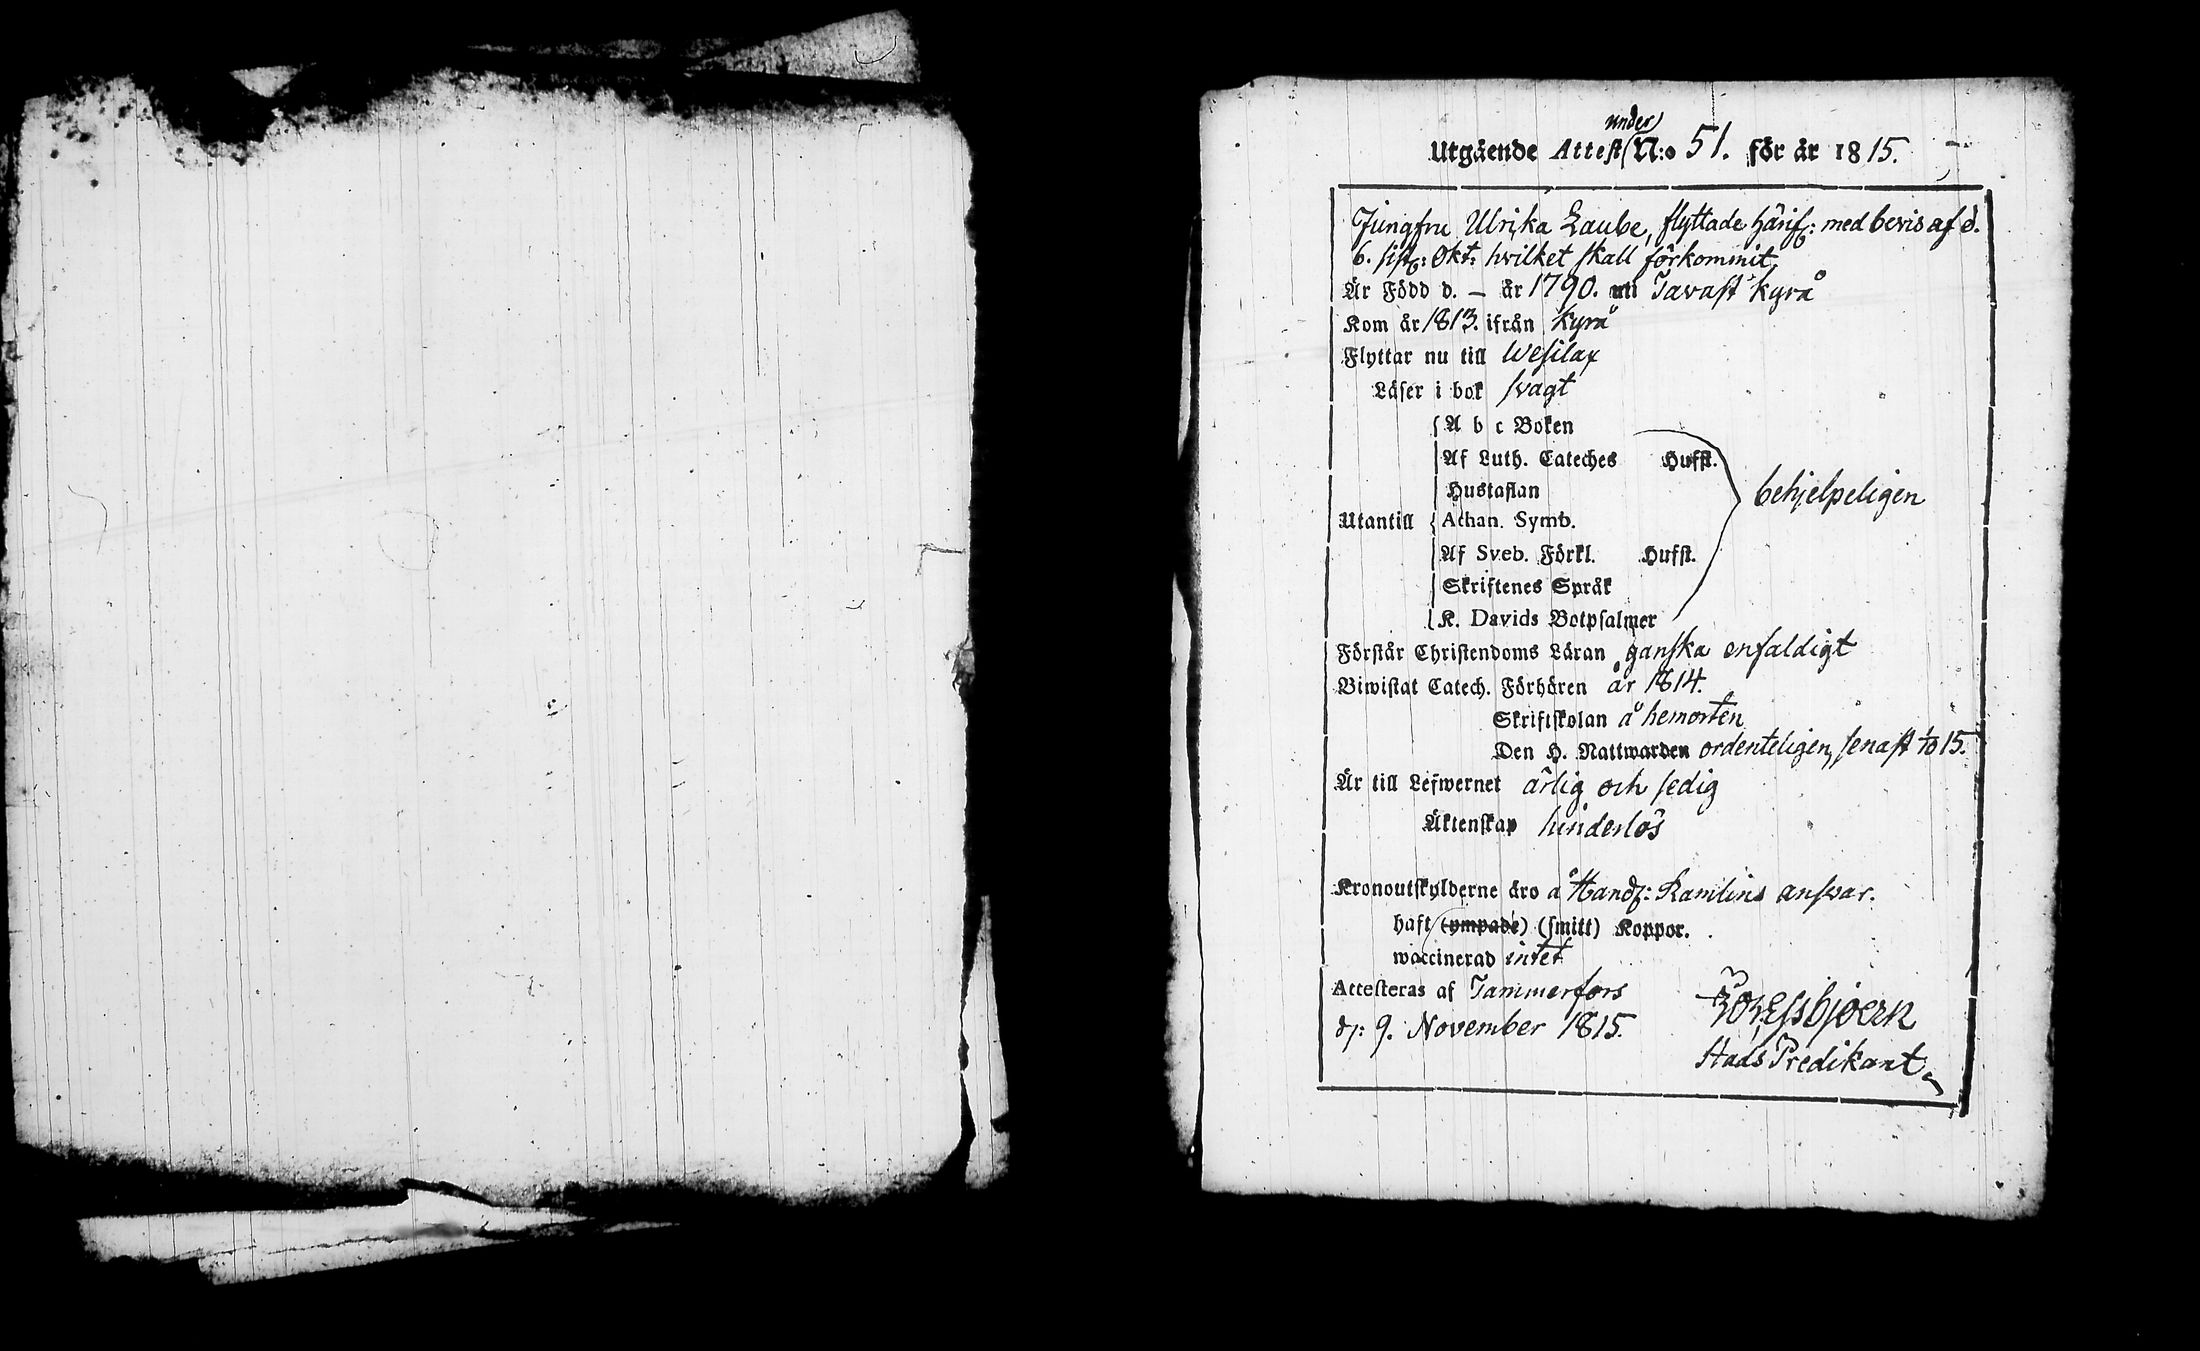 under
Utgående Attest N:o 51. för år 1815.
Jungfru Ulrika Laube, flyttade härifr: med bevis af d.
6. sistl: Okt: hvilket skall förkommit,
Är Född d. – år 1790. uti Tavast kyrå
Kom år 1813. ifrån kyrå
Flyttar nu till Wesilax
Läser i bok svagt
A b c Boken
Af Luth. Cateches Hufst.
Hustaflan
behjelpeligen
Utantill Athan. Symb.
Af Sveb. Förkl. Hufst.
Skriftenes Språk
K. Davids Botpsalmer
Förstår Christendoms Läran ganska enfaldigt
Biwistat Catech. Förhören år 1814.
Skriftskolan å hemorten
Den H. Nattwarden ordenteligen, senast 15.
Är till Lefwernet ärlig och sedig
Äktenskap hinderlös
Kronoutskylderne äro å Handl: Ramlins ansvar.
haft (ympade) (smitt) Koppor.
waccinerad intet
Attesteras af Tammerfors
d: 9. November 1815.
Stads Predikant